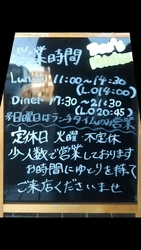 営業時間
Lunch 11:00～14:30
(L.O 14:00)
Diner 17:30～21:30
(L.O 20:45)
※日曜日はランチタイムのみ営業
定休日 火曜・不定休
少人数で営業しております
お時間にゆとりを持って
ご来店くださいませ